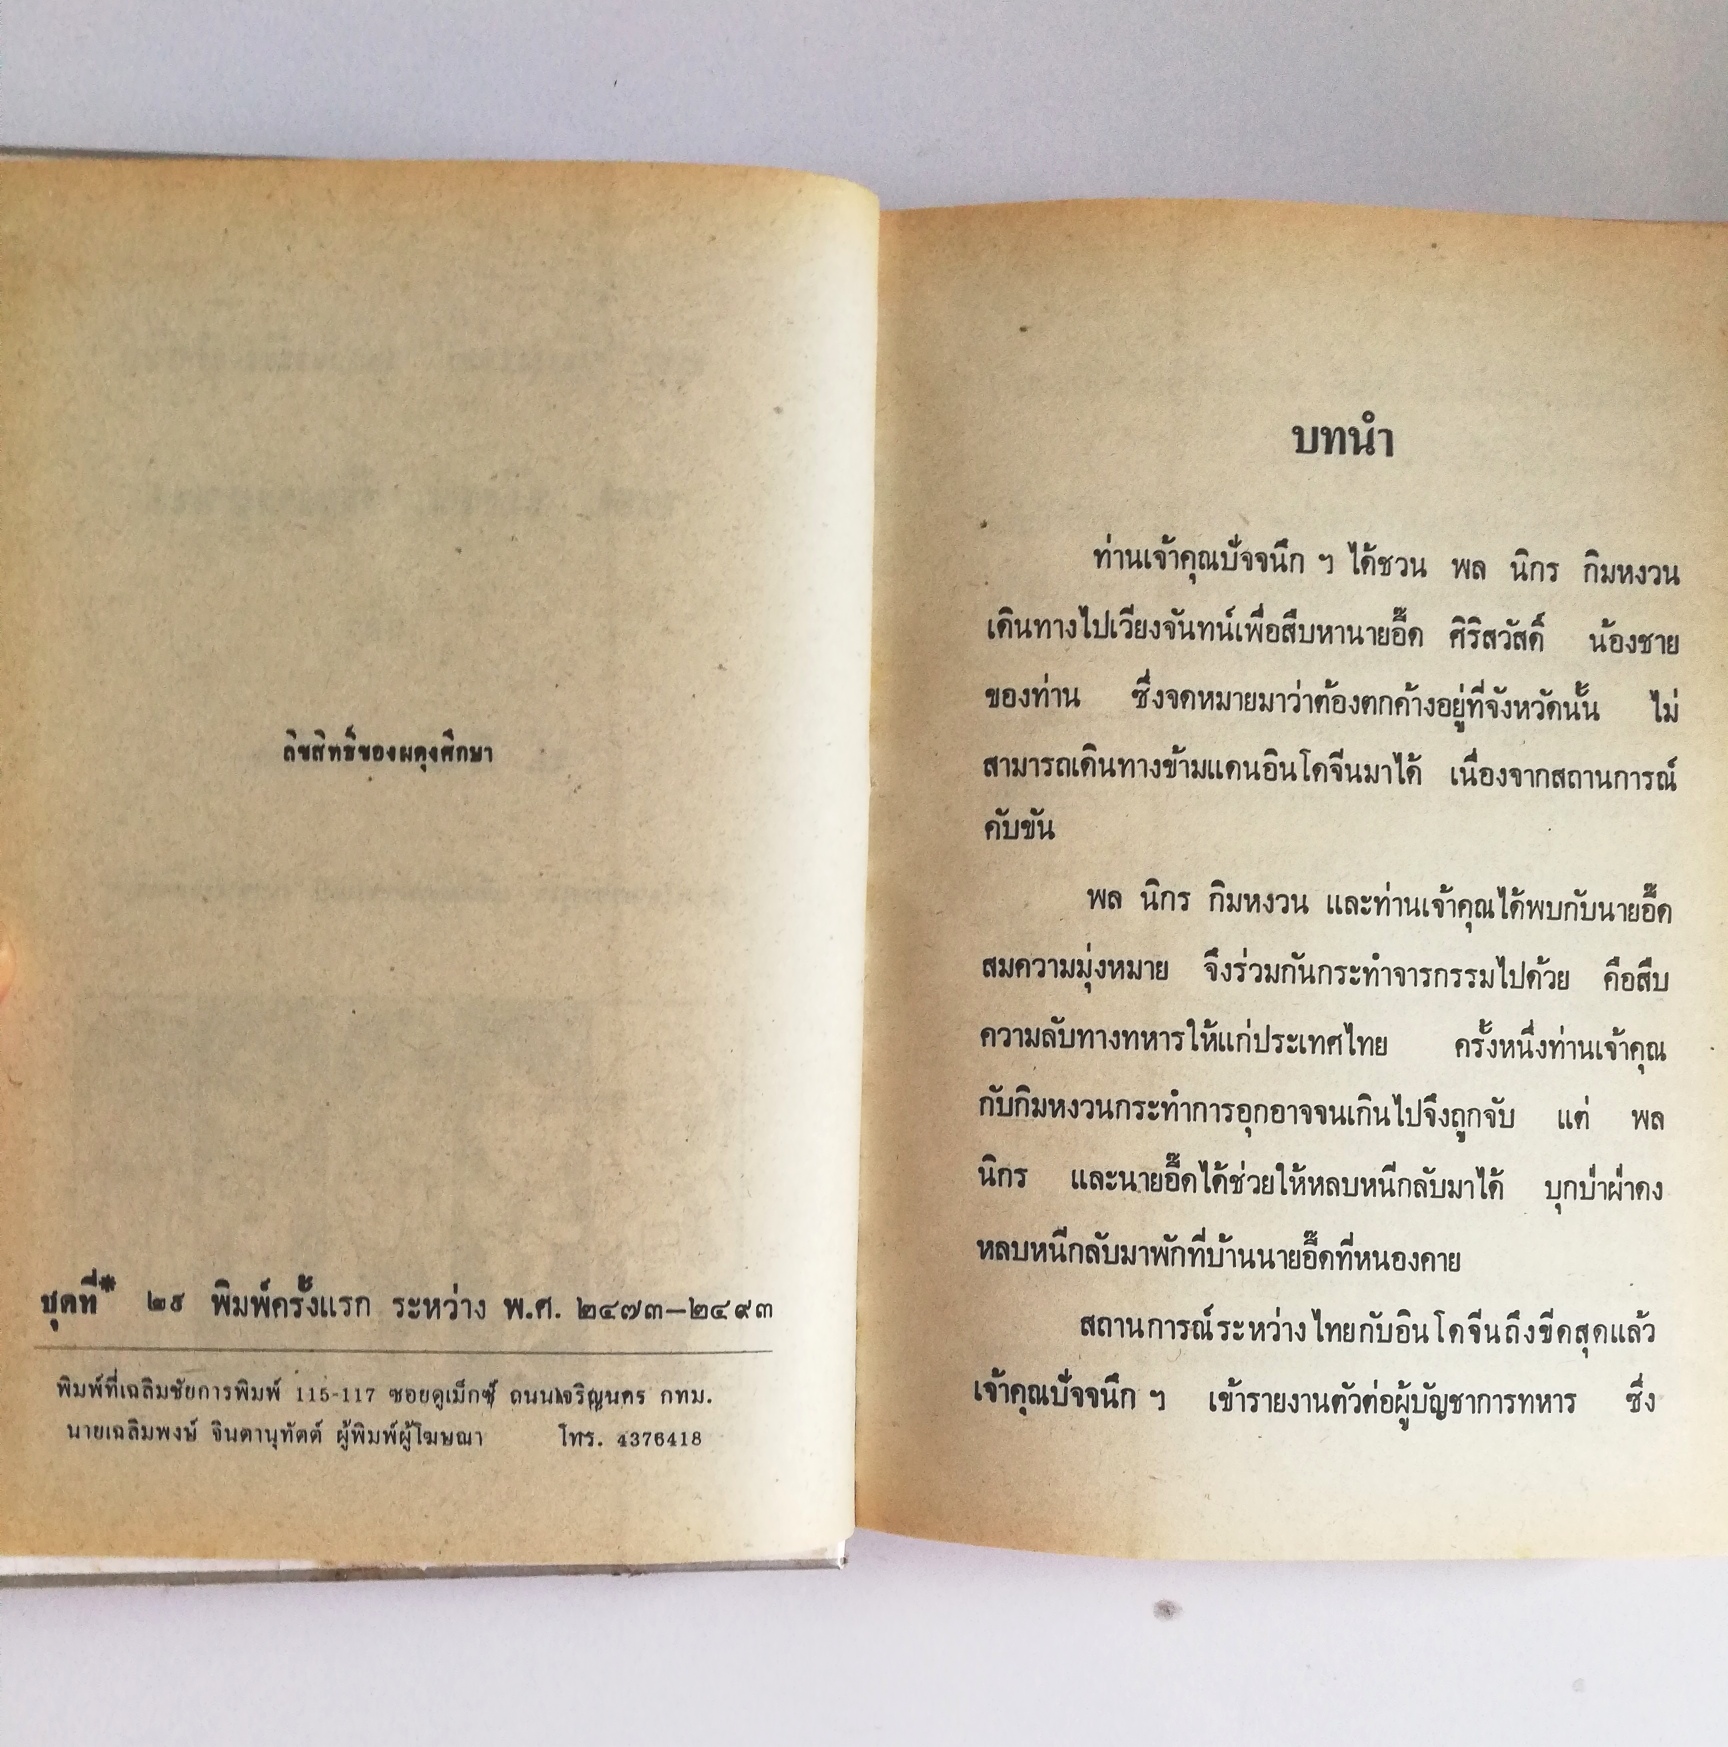 ลิขสิทธิ์ของผดุงศึกษา
ชุดที่* ๒๙ พิมพ์ครั้งแรก ระหว่าง พ.ศ. ๒๔๗๓—๒๔๙๓
พิมพ์ที่เฉลิมชัยการพิมพ์ 115-117 ซอยดูเม็กซ์ ถนนเจริญนคร กทม.
นายเฉลิมพงษ์ จินตานุทัตต์ ผู้พิมพ์ผู้โฆษณา โทร. 4376418
บทนำ
ท่านเจ้าคุณปัจจนึก ฯ ได้ชวน พล นิกร กิมหงวน
เดินทางไปเวียงจันทน์เพื่อสืบหานายอี๊ด ศิริสวัสดิ์ น้องชาย
ของท่าน ซึ่งจดหมายมาว่าต้องตกค้างอยู่ที่จังหวัดนั้น ไม่
สามารถเดินทางข้ามแดนอินโดจีนมาได้ เนื่องจากสถานการณ์
คับขัน
พล นิกร กิมหงวน และท่านเจ้าคุณได้พบกับนายอี๊ด
สมความมุ่งหมาย จึงร่วมกันกระทำจารกรรมไปด้วย คือสืบ
ความลับทางทหารให้แก่ประเทศไทย ครั้งหนึ่งท่านเจ้าคุณ
กับกิมหงวนกระทำการอุกอาจจนเกินไปจึงถูกจับ แต่ พล
นิกร และนายอี๊ดได้ช่วยให้หลบหนีกลับมาได้ บุกป่าฝ่าดง
หลบหนีกลับมาพักที่บ้านนายอี๊ดที่หนองคาย
สถานการณ์ระหว่างไทยกับอินโดจีนถึงขีดสุดแล้ว
เจ้าคุณปัจจนึก ฯ เข้ารายงานตัวต่อผู้บัญชาการทหาร ซึ่ง